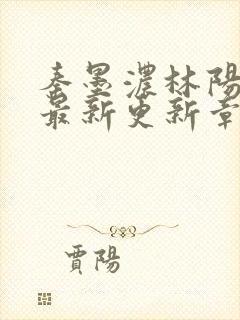 秦墨濃林陽
最新更新章
賈陽